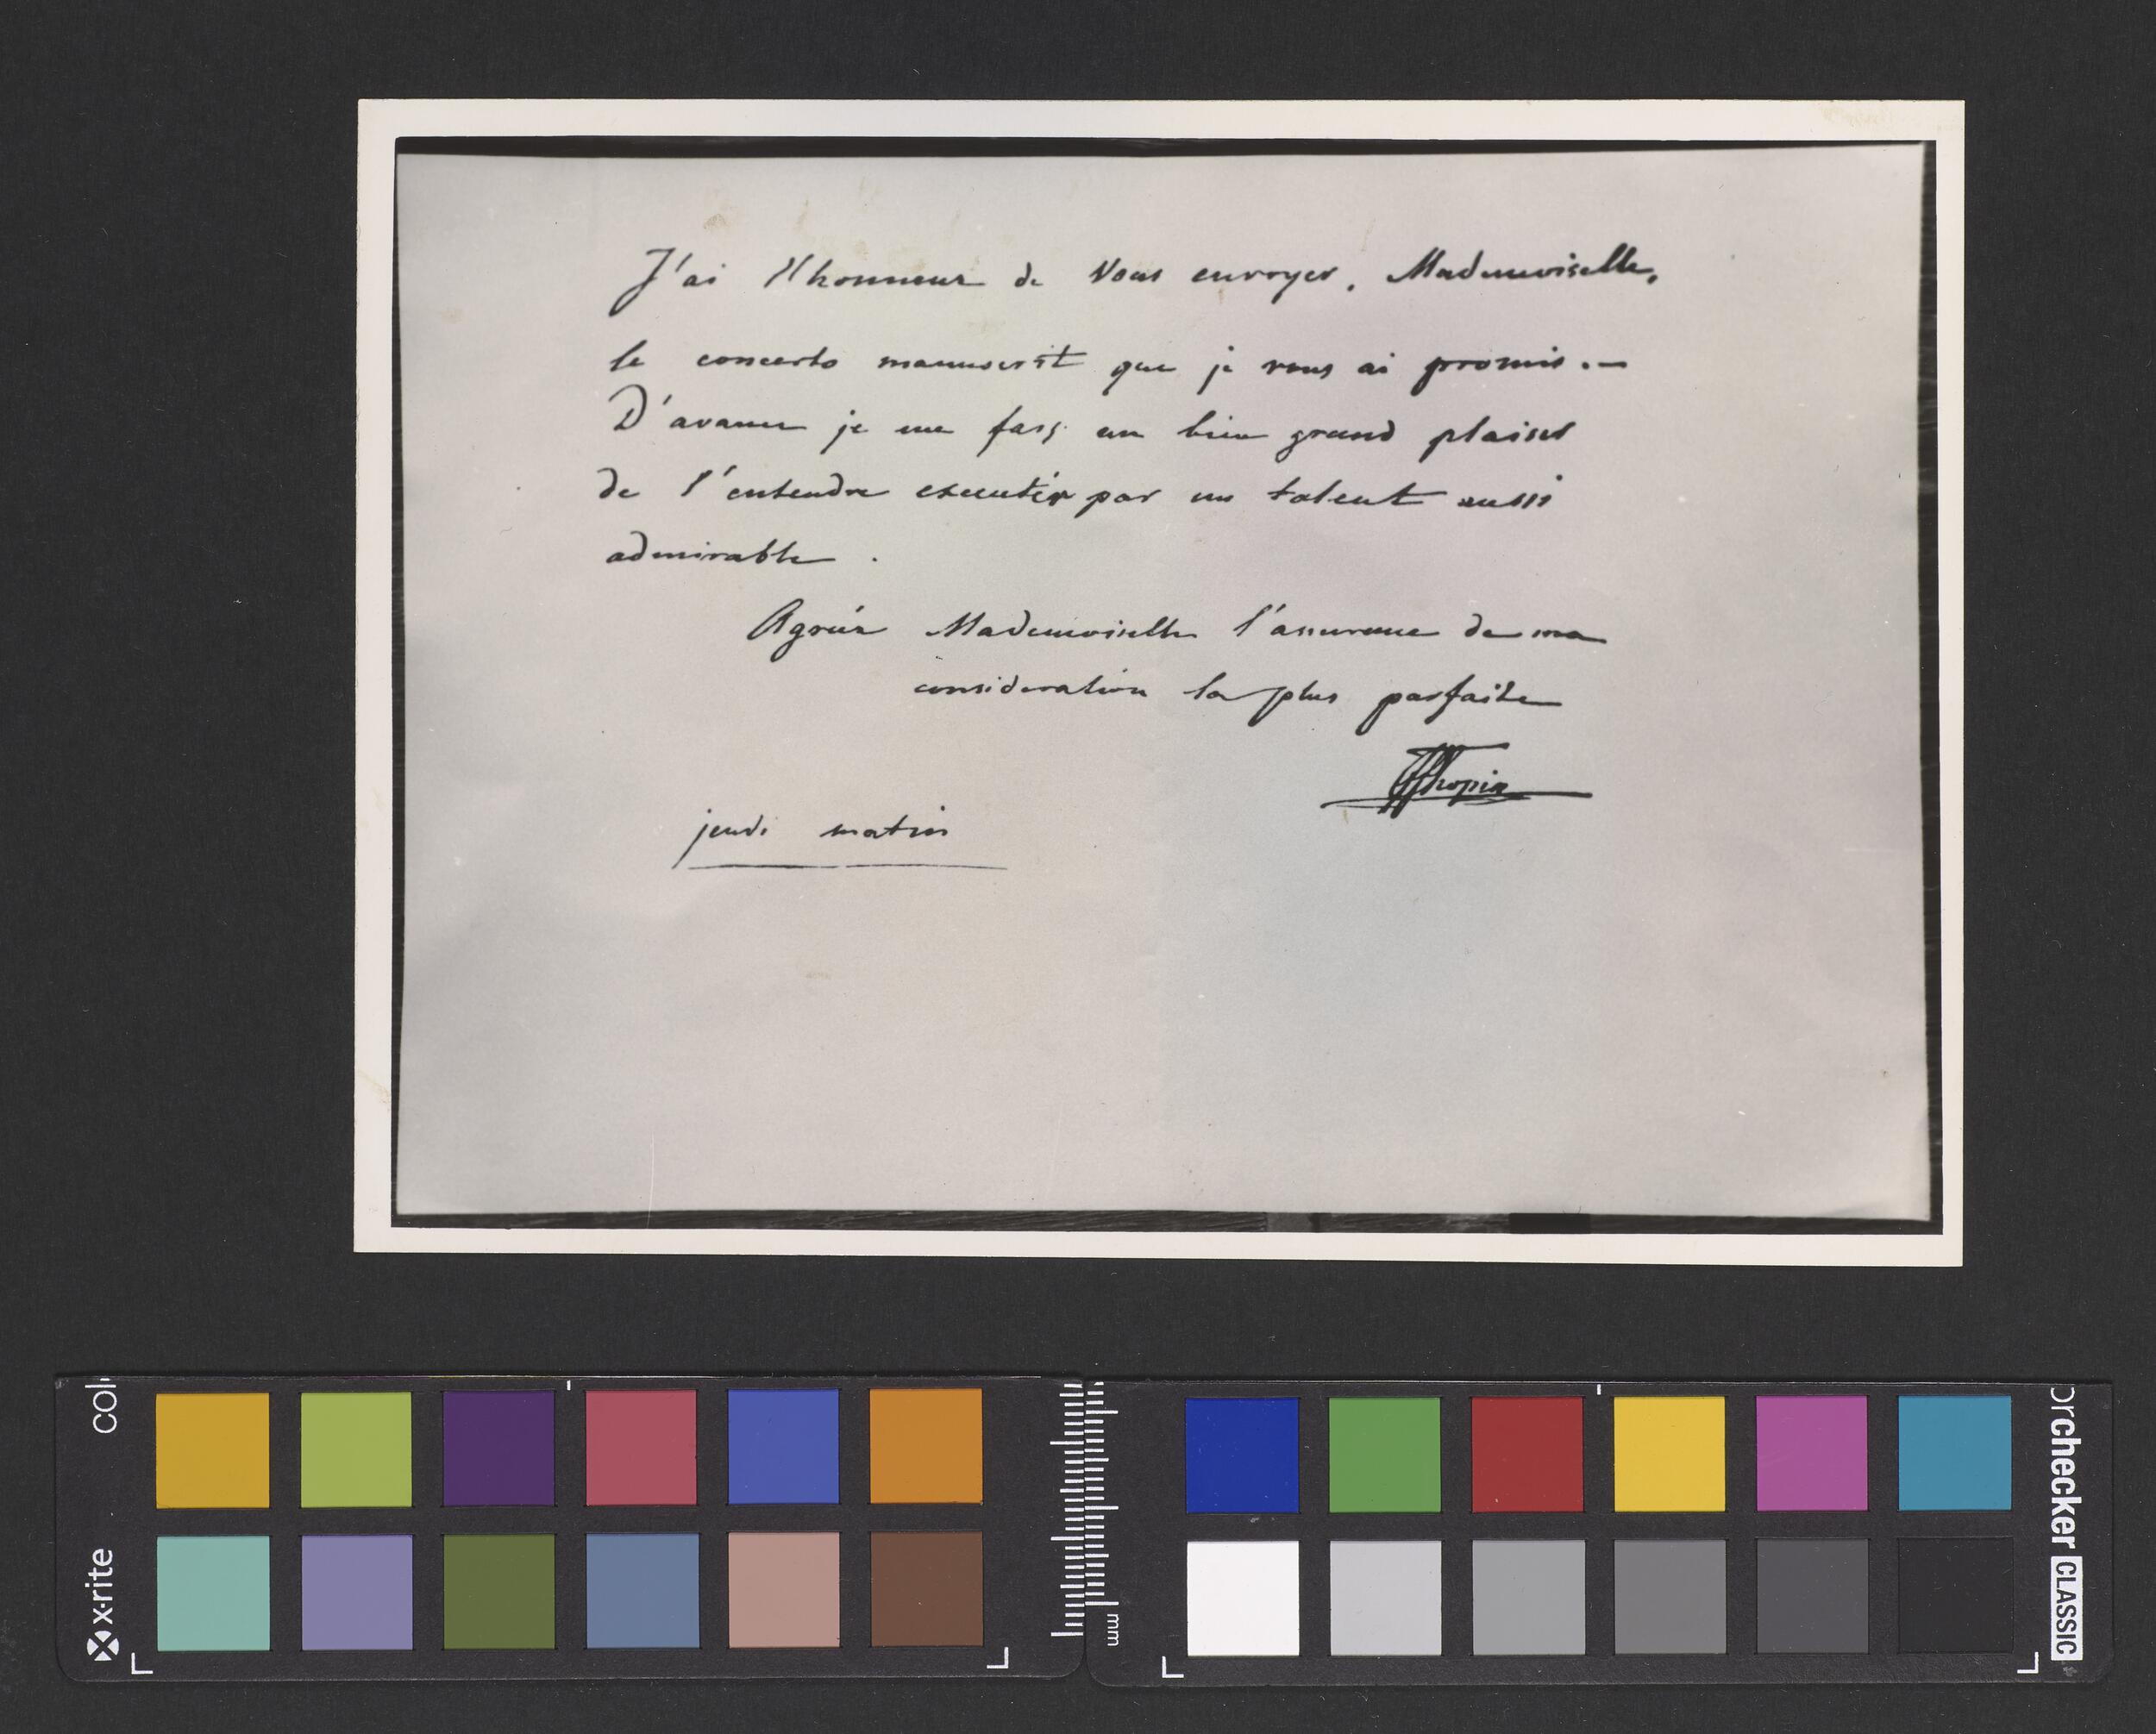 J'ai l'honneur de Vous envoyer, Mademoiselle,
le concerto manuscrit que je vous ai promis. —
D'avance je me fais un bien grand plaisir
de l'entendre executér par un talent aussi
admirable .
Agréez Mademoiselle l'assurance de ma
consideration la plus parfaite
FChopin
jeudi matin
x·rite
colorchecker CLASSIC
mm